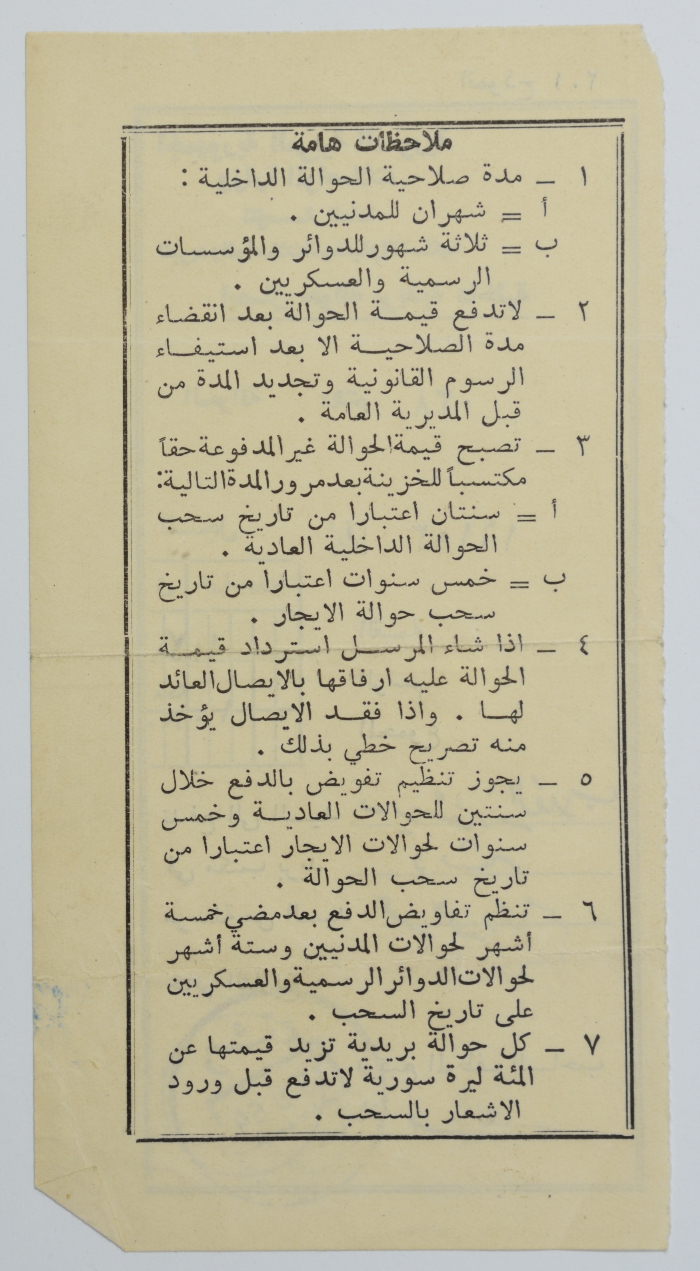 ملاحظات هامة
١ – مدة صلاحية الحوالة الداخلية :
أ = شهران للمدنيين .
ب = ثلاثة شهور للدوائر والمؤسسات
الرسمية والعسكريين .
٢ – لاتدفع قيمة الحوالة بعد انقضاء
مدة الصلاحية الا بعد استيفاء
الرسوم القانونية وتجديد المدة من
قبل المديرية العامة .
٣ – تصبح قيمة الحوالة غير المدفوعة حقاً
مكتسباً للخزينة بعد مرور المدة التالية:
أ = سنتان اعتبارا من تاريخ سحب
الحوالة الداخلية العادية .
ب = خمس سنوات اعتبارا من تاريخ
سحب حوالة الايجار .
٤ – اذا شاء المرسل استرداد قيمة
الحوالة عليه ارفاقها بالايصال العائد
لها . واذا فقد الايصال يؤخذ
منه تصريح خطي بذلك .
٥ – يجوز تنظيم تفويض بالدفع خلال
سنتين للحوالات العادية وخمس
سنوات لحوالات الايجار اعتبارا من
تاريخ سحب الحوالة .
٦ – تنظم تفاويض الدفع بعد مضي خمسة
أشهر لحوالات المدنيين وستة أشهر
لحوالات الدوائر الرسمية والعسكريين
على تاريخ السحب .
٧ – كل حوالة بريدية تزيد قيمتها عن
المئة ليرة سورية لاتدفع قبل ورود
الاشعار بالسحب .